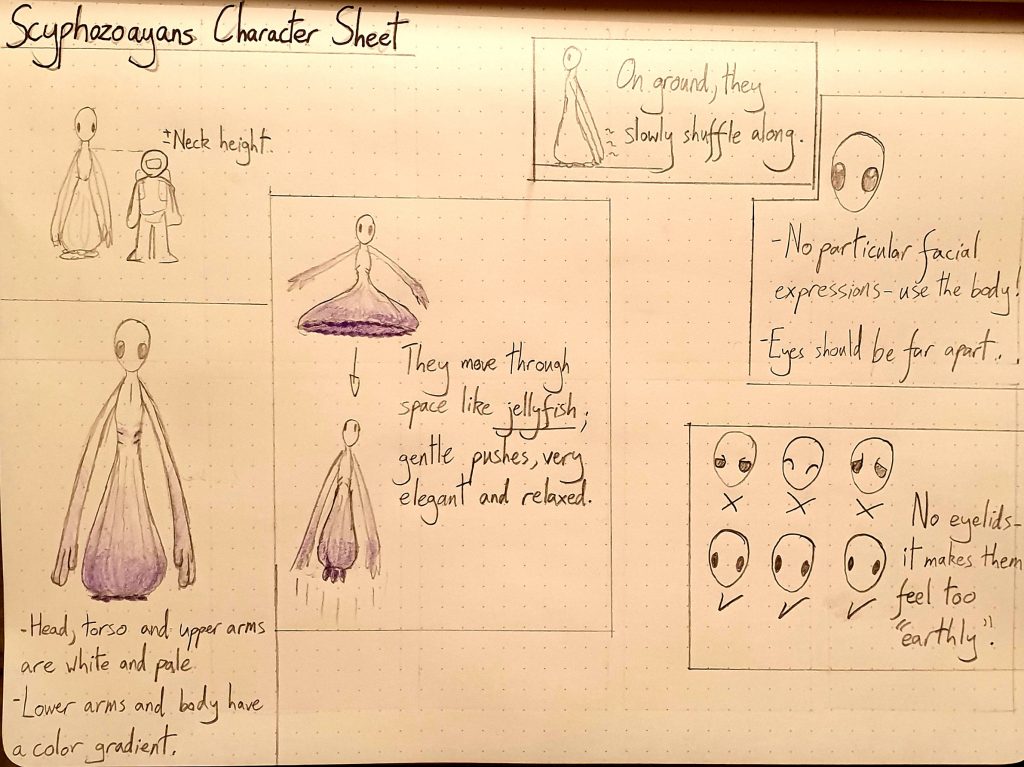 Scyphozoayans Character Sheet
± Neck height.
On ground, they
slowly shuffle along.
-No particular facial
expressions- use the body!
-Eyes should be far apart..
They move through
space like jellyfish;
gentle pushes, very
elegant and relaxed.
No eyelids-
it makes them
feel too
"earthly".
-Head, torso and upper arms
are white and pale
-Lower arms and body have
a color gradient.